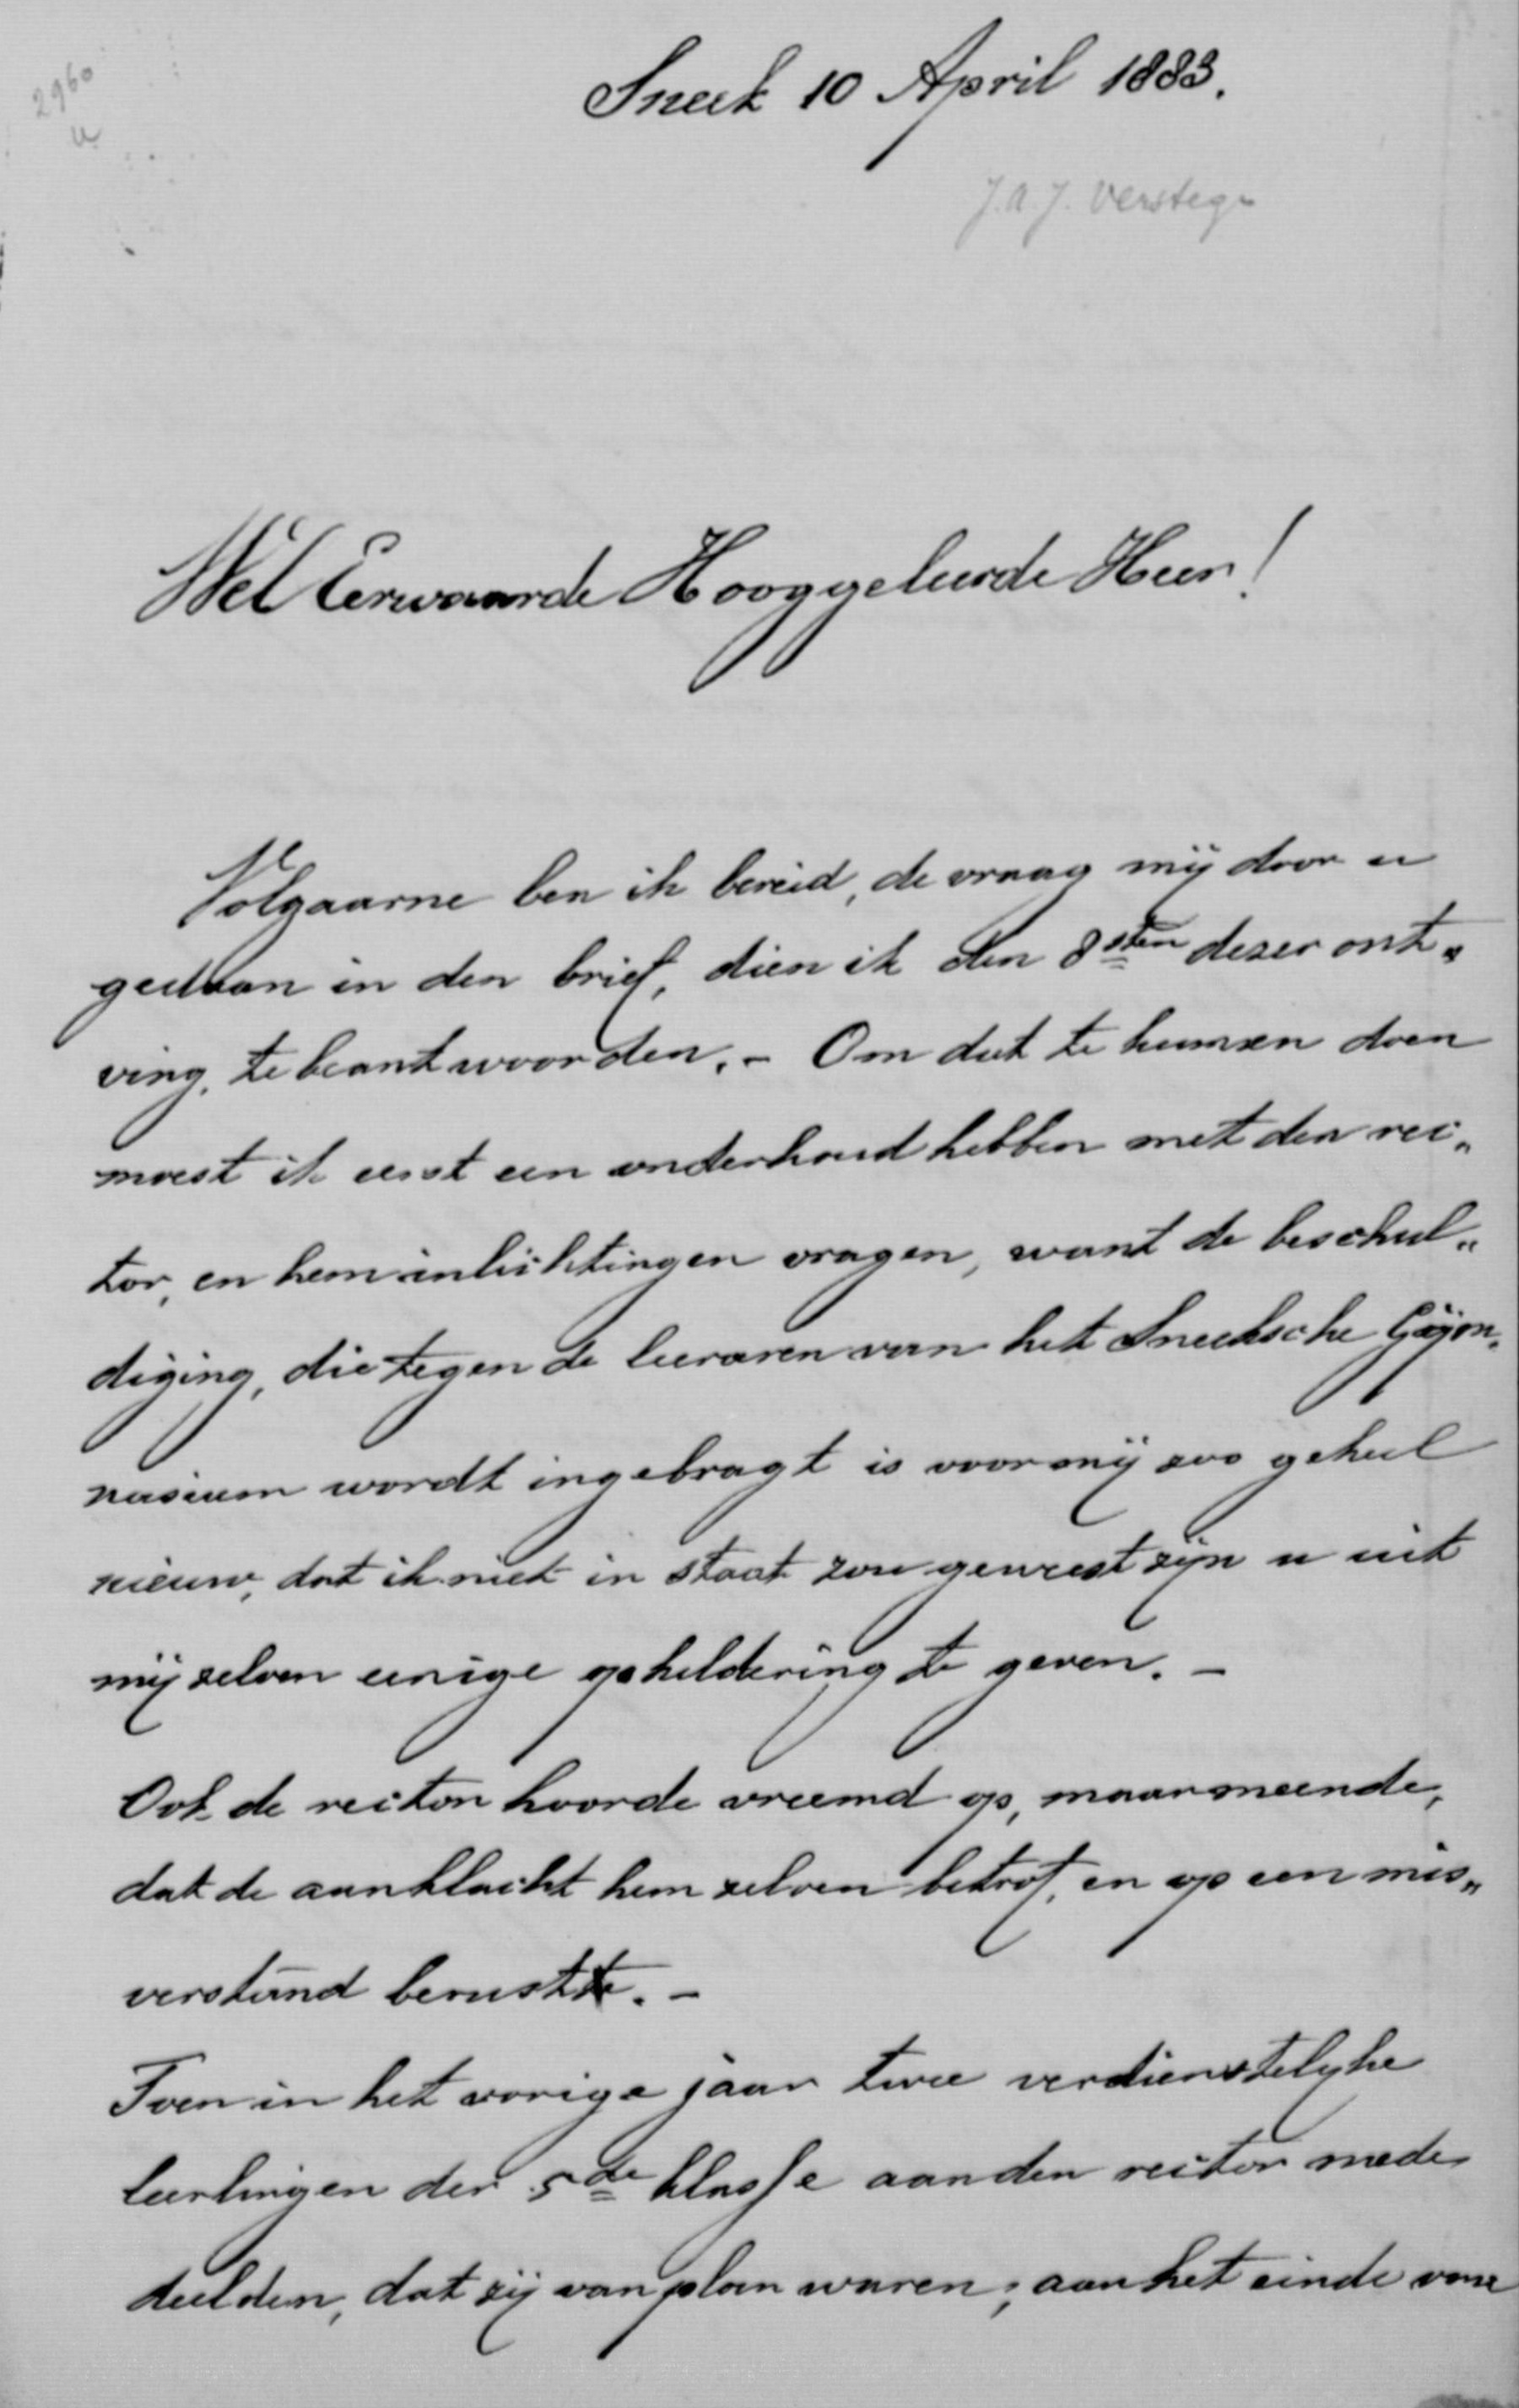 2960
Sneek 10 April 1883.
J. A. J. Verstege
Wel Eerwaarde Hooggeleerde Heer!
Volgaarne ben ik bereid, de vraag mij door u
gedaan in den brief, dien ik den 8sten dezer ont„
ving, te beantwoorden. – Om dat te kunnen doen
moest ik eerst een onderhoud hebben met den rec„
tor, en hem inlichtingen vragen, want de beschul„
diging, die tegen de leeraren van het Sneeksche Gym„
nasium wordt ingebragt is voor mij zoo geheel
nieuw, dat ik niet in staat zou geweest zijn u uit
mij zelven eenige opheldering te geven. –
Ook de rector hoorde vreemd op, maar meende,
dat de aanklacht hem zelven betrof, en op een mis„
verstand berustte. –
Toen in het vorige jaar twee verdienstelyke
leerlingen der 5de klasse aan den rector mede
deelden, dat zij van plan waren, aan het einde van